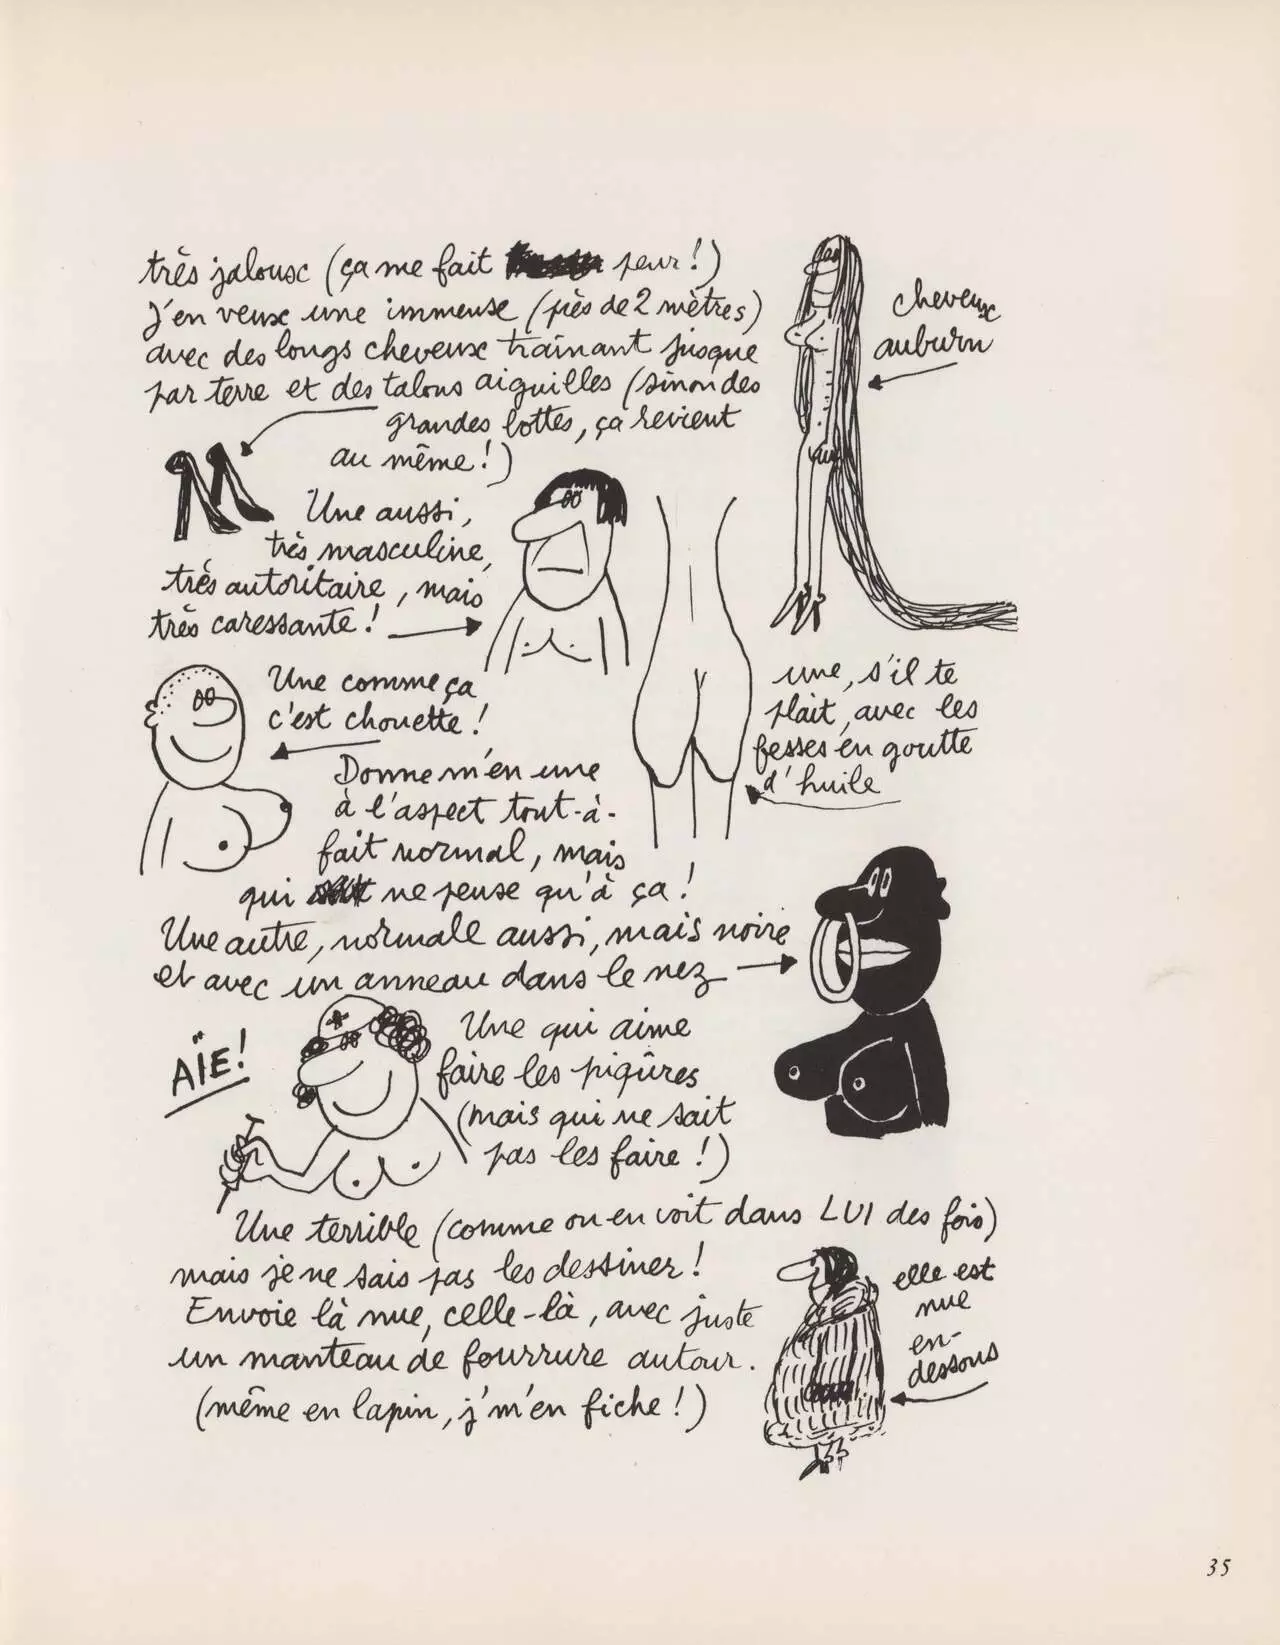 très jalouse (ça me fait peur!)
J'en veux une immense (près de 2 mètres)
avec des longs cheveux traînant jusque
par terre et des talons aiguilles (sinon des
grandes bottes, ça revient
au même!)
cheveux
auburn
Une aussi,
très masculine,
très autoritaire, mais
très caressante!
Une comme ça
c'est chouette!
une, s'il te
plait, avec les
fesses en goutte
d'huile
Donne m'en une
à l'aspect tout-à-
fait normal, mais
qui ne pense qu'à ça!
Une autre, normale aussi, mais noire
et avec un anneau dans le nez
AÏE!
Une qui aime
faire les piqûres
(mais qui ne sait
pas les faire!)
Une terrible (comme on en voit dans LUI des fois)
mais je ne sais pas les dessiner!
Envoie là nue, celle-là, avec juste
un manteau de fourrure autour.
(même en lapin, j'm'en fiche!)
elle est
nue
en-
dessous
35